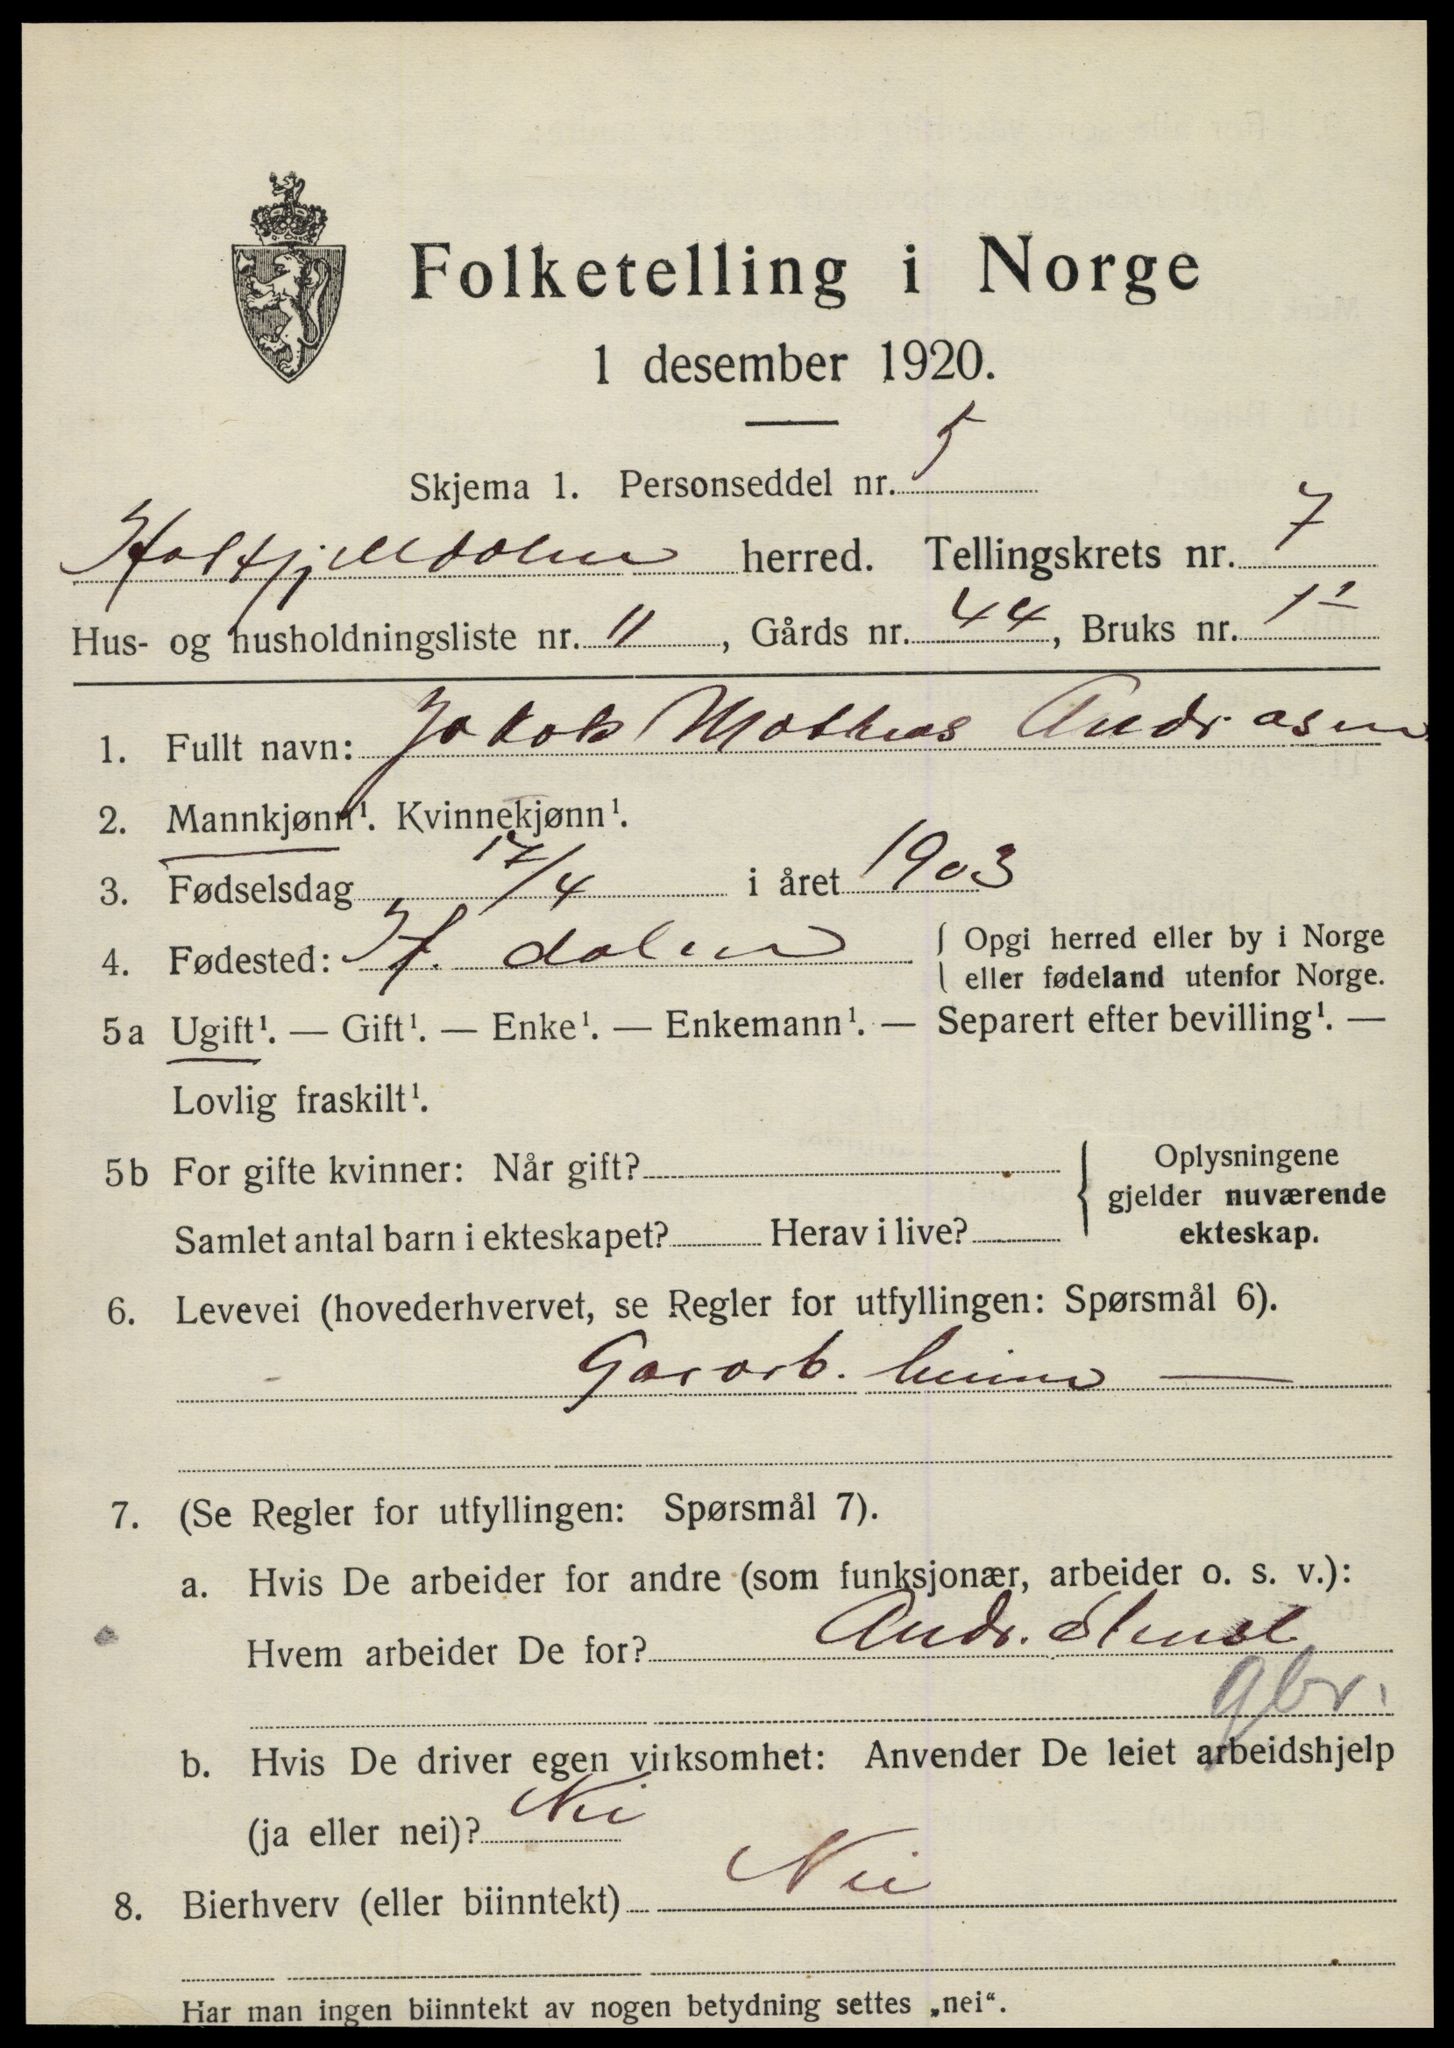 Folketelling i Norge
1 desember 1920.
Skjema 1. Personseddel nr. 5
Hatfjelldalen herred. Tellingskrets nr. 7
Hus- og husholdningsliste nr. 11, Gårds nr. 44, Bruks nr. 1
1. Fullt navn: Jakob Mathias Andr.asen
2. Mannkjønn¹. Kvinnekjønn¹.
3. Fødselsdag 17/4 i året 1903
4. Fødested: Hf. dalen { Opgi herred eller by i Norge
eller fødeland utenfor Norge.
5a Ugift¹. — Gift¹. — Enke¹. — Enkemann¹. — Separert efter bevilling¹. —
Lovlig fraskilt¹.
5b For gifte kvinner: Når gift?
Samlet antal barn i ekteskapet? Herav i live?
Oplysningene
gjelder nuværende
ekteskap.
6. Levevei (hovederhvervet, se Regler for utfyllingen: Spørsmål 6).
Gararb. heime —
7. (Se Regler for utfyllingen: Spørsmål 7).
a. Hvis De arbeider for andre (som funksjonær, arbeider o. s. v.):
Hvem arbeider De for? Andr.
gbr.
b. Hvis De driver egen virksomhet: Anvender De leiet arbeidshjelp
(ja eller nei)? Nei
8. Bierhverv (eller biinntekt) Nei
Har man ingen biinntekt av nogen betydning settes „nei“.